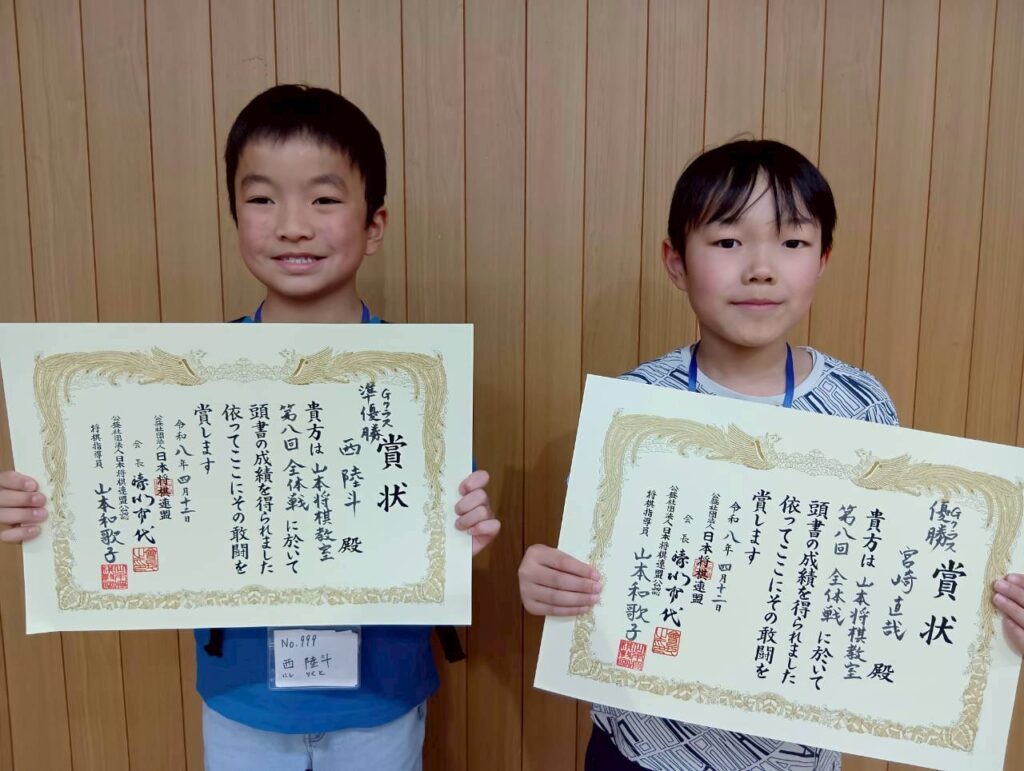 賞状
Gクラス
準優勝
西陸斗 殿
貴方は山本将棋教室
第八回 全体戦 に於いて
頭書の成績を得られました
依ってここにその敢闘を
賞します
令和八年四月十二日
公益社団法人日本将棋連盟
会長
公益社団法人日本将棋連盟公認
将棋指導員 山本和歌子
No.999
西 陸斗
にし りくと
賞状
Gクラス
優勝
宮崎直哉 殿
貴方は山本将棋教室
第八回 全体戦 に於いて
頭書の成績を得られました
依ってここにその敢闘を
賞します
令和八年四月十二日
公益社団法人日本将棋連盟
会長
公益社団法人日本将棋連盟公認
将棋指導員 山本和歌子